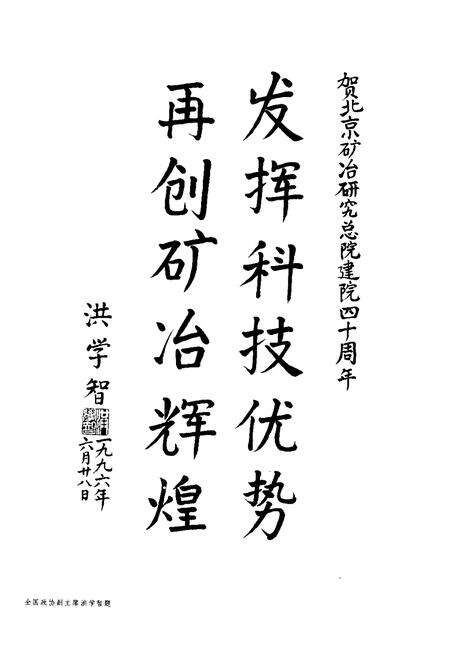 贺北京矿冶研究总院建院四十周年
发挥科技优势
再创矿冶辉煌
洪学智
一九九六年
六月廿八日
全国政协副主席洪学智题